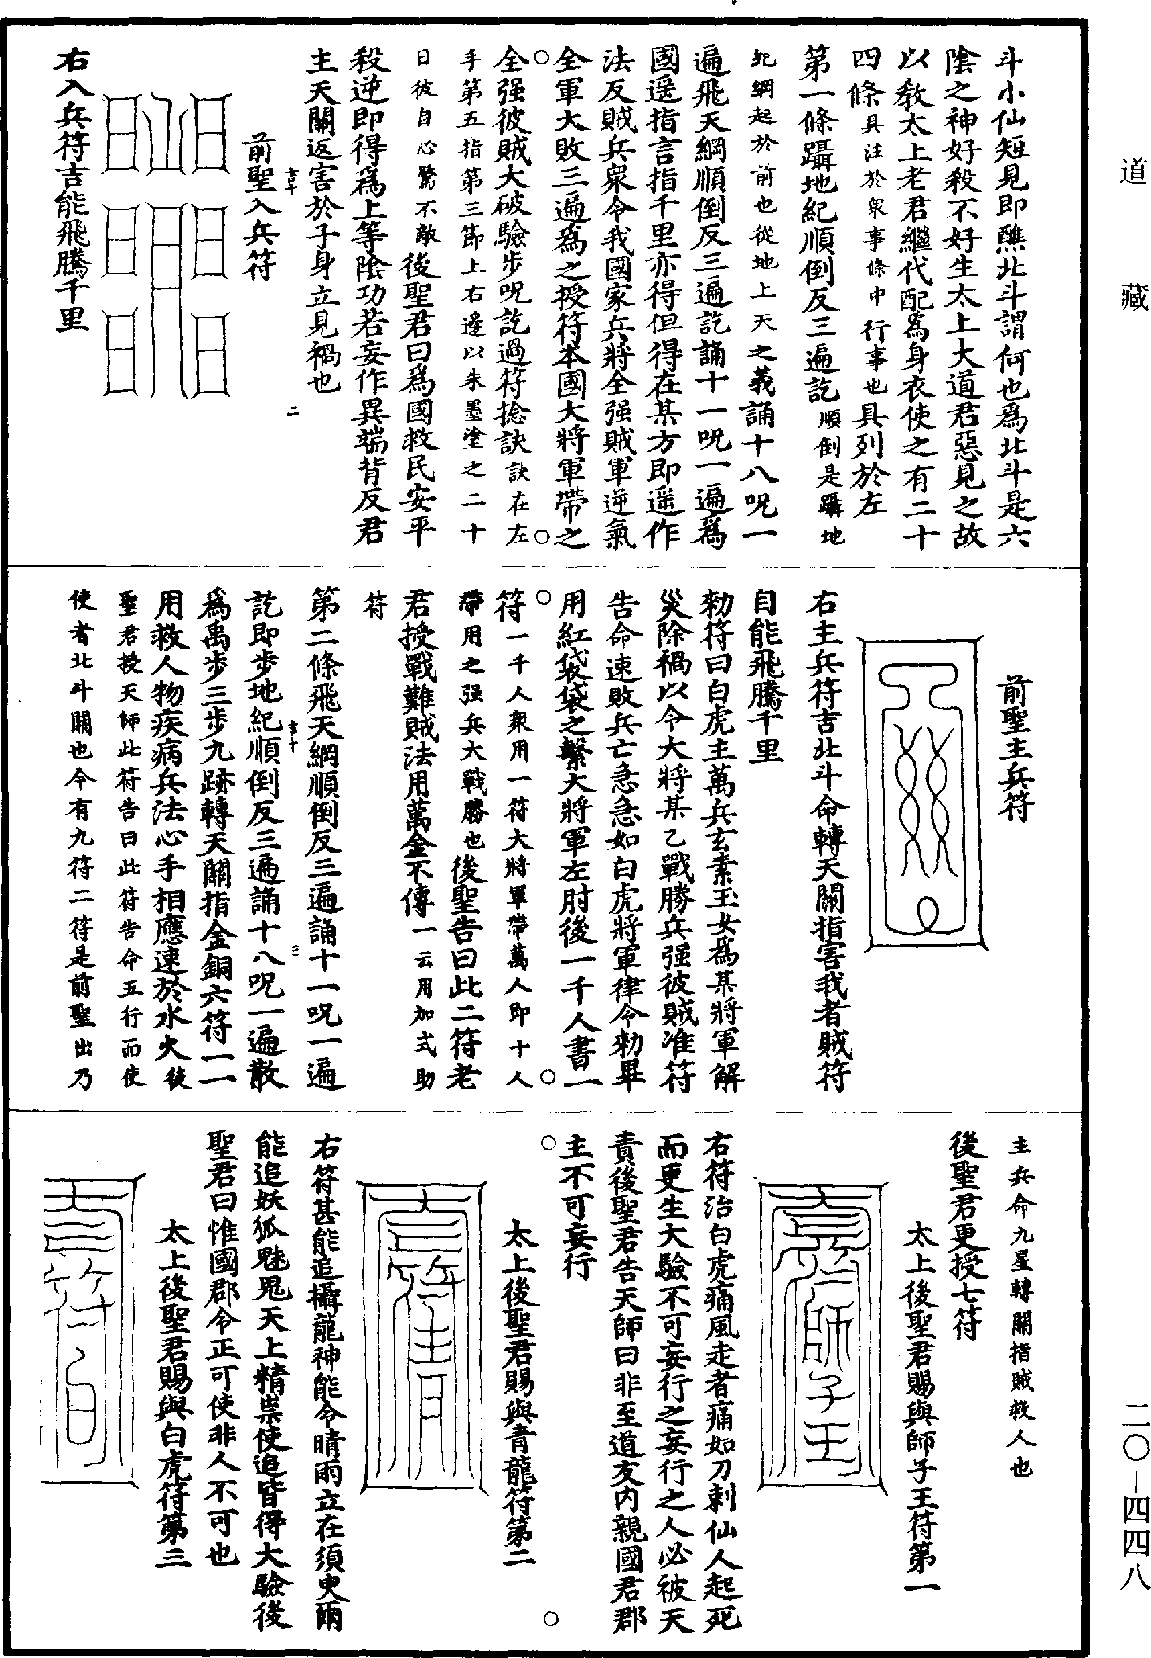 道藏
二〇—四四八
斗小仙短見即醮北斗謂何也爲北斗是六
陰之神好殺不好生太上大道君惡見之故
以敎太上老君繼代配爲身衣使之有二十
四條具注於衆事條中行事也具列於左
第一條躡地紀順倒反三遍訖順倒是躡地
紀綱起於前也從地上天之義誦十八呪一
遍飛天綱順倒反三遍訖誦十一呪一遍爲
國遥指言指千里亦得但得在某方即遥作
法反賊兵衆令我國家兵將全强賊軍逆氣
全軍大敗三遍爲之授符本國大將軍帶之
全强彼賊大破驗步呪訖過符捻訣訣在左
手第五指第三節上右邊以朱墨塗之二十
日彼自心驚不敵後聖君曰爲國救民安平
殺逆即得爲上等陰功若妄作異端背反君
主天關返害於子身立見禍也
前聖入兵符
右入兵符吉能飛騰千里
前聖主兵符
右主兵符吉北斗命轉天關指害我者賊符
自能飛騰千里
勑符曰白虎主萬兵玄素玉女爲某將軍解
災除禍以令大將某乙戰勝兵强彼賊准符
告命速敗兵亡急急如白虎將軍律令勑畢
用紅袋袋之繫大將軍左肘後一千人書一
符一千人衆用一符大將軍帶萬人即十人
帶用之强兵大戰勝也後聖告曰此二符老
君授戰難賊法用萬金不傳一云用加式助
符
第二條飛天綱順倒反三遍誦十一呪一遍
訖即步地紀順倒反三遍誦十八呪一遍散
爲禹步三步九跡轉天關指金銅六符一一
用救人物疾病兵法心手相應速於水火後
聖君授天師此符告曰此符告命五行而使
使者北斗關也今有九符二符是前聖出乃
主兵命九星轉關指賊殺人也
後聖君更授七符
太上後聖君賜與師子王符第一
右符治白虎痛風走者痛如刀刺仙人起死
而更生大驗不可妄行之妄行之人必被天
責後聖君告天師曰非至道友內親國君郡
主不可妄行
太上後聖君賜與青龍符第二
右符甚能追攝龍神能令晴雨立在須臾爾
能追妖狐魅鬼天上精祟使追皆得大驗後
聖君曰惟國郡令正可使非人不可也
太上後聖君賜與白虎符第三